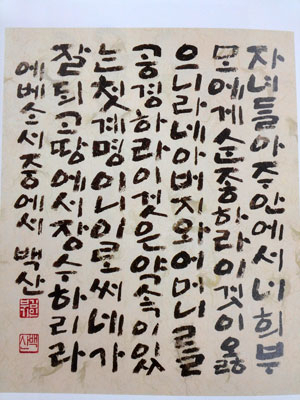 자녀들아주안에서너희부
모에게순종하라이것이옳
으니라네아버지와어머니를
공경하라이것은약속이있
는첫계명이니이로써네가
잘되고땅에서장수하리라
에베소서중에서 백산